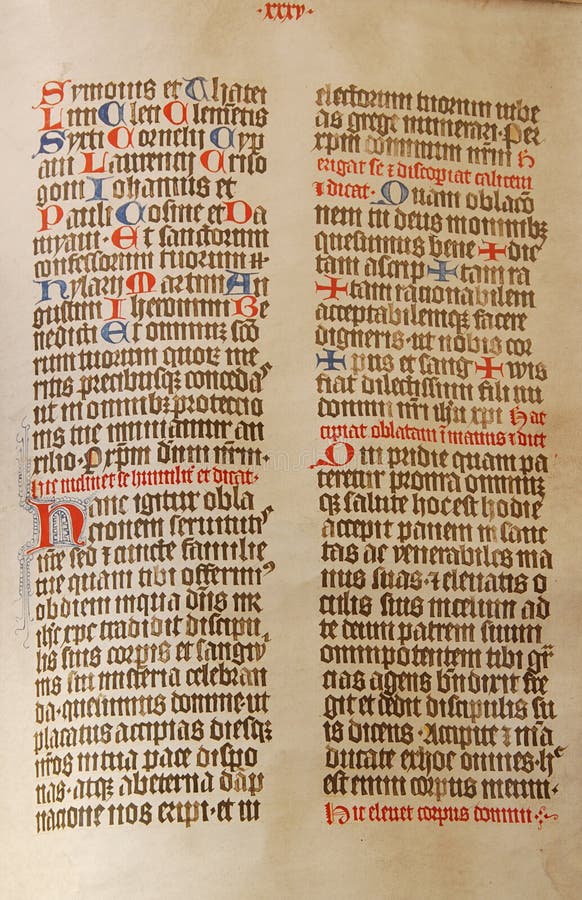 ·xxxv·
Symonis et Thatei
Lini Cleti Clementis
Syxti Cornelii Cyp
ani Laurencii Criso
goni Iohannis et
Pauli Cosme et Da
myani · Et sanctorum
confessorum tuorum
hylarii Martini Au
gustini Iheronimi Be
nedicti Et omnium sco
rum tuorum quor me
ritis precibusqꝫ conceda
ut in omnibꝫ proteccio
nis tue muniamur au
xilio · P xpm dnm nrm ·
hic inclinet se humilit et dicat ·
Hanc igitur obla
cionem seruitutis
nre sed ⁊ cuncte familie
tue quam tibi offerimꝰ
ob diem in qua dns nr
ihc xpc tradidit discipu
lis suis corpis et sangwi
nis sui misteria celebran
da · quesumus domine · ut
placatus accipias diesqꝫ
nros in tua pace dispo
nas · atqꝫ ab eterna dāp
nacione nos eripi · et in
electorum tuorum iube
as grege numerari · Per
xpm dominum nrm H
erigat se ⁊ discopiat calicem
⁊ dicat · Quam oblacō
nem tu deus in omnibꝫ
quesumus bene ✠ dic
tam ascrip ✠ tam ra
✠ tam racionabilem
acceptabilemqꝫ facere
digneris · ut nobis cor
✠ pus et sang ✠ wis
fiat dilectissimi filii tui
domini nri ihu xpi Hic
accipiat oblatam ī manus ⁊ dicat
Qui pridie quam pa
teretur pro nra omnium
qꝫ salute hoc est hodie
accepit panem in sanc
tas ac venerabiles ma
nus suas · ⁊ eleuatis o
culis suis in celum ad
te deum patrem suum
omnipotentem tibi gr̄
cias agens bn̄dixit fre
git et dedit discipulis su
is dicens · Accipite ⁊ mā
ducate ex hoc omnes · h
est enim corpus meum ·
Hic eleuet corpus domini